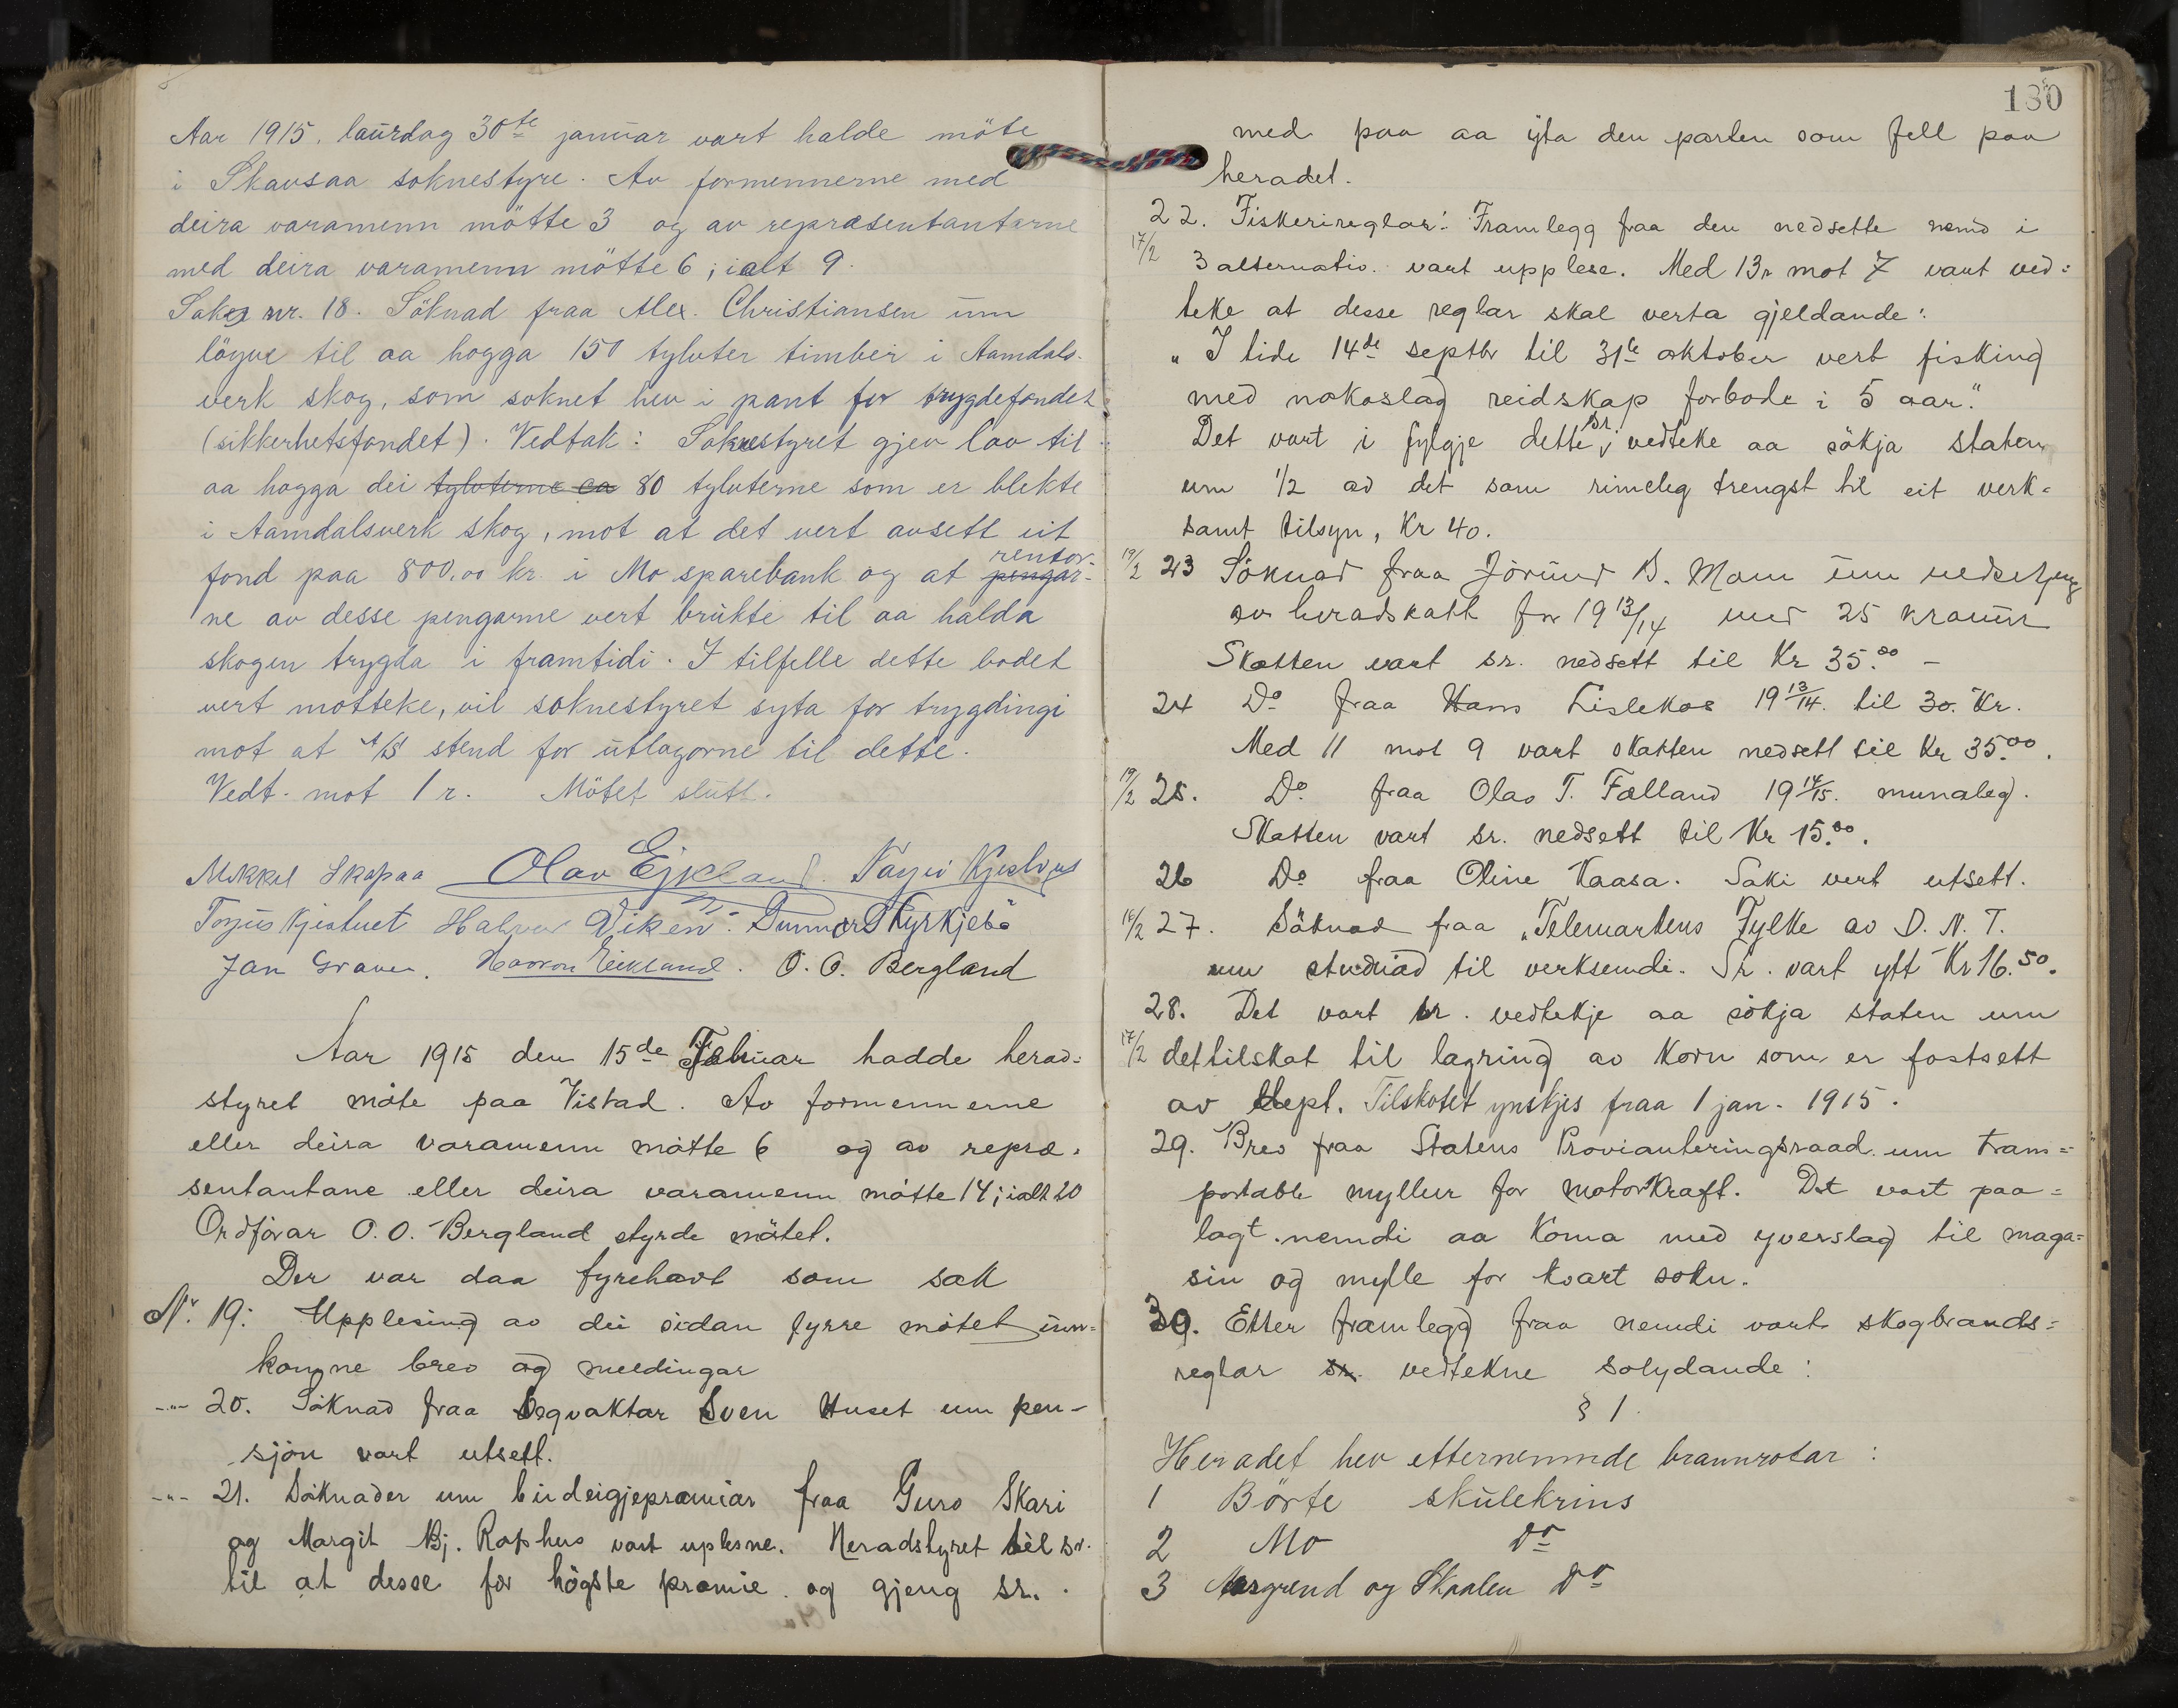 Aar 1915, laurdag 30te januar vart halde möte
i Skavsaa soknestyre. Av formennerne med
deira varamenn mötte 3 og av repræsentantarne
med deira varamenn mötte 6; ialt 9.
Sak nr. 18. Söknad fraa Alex. Christiansen um
löyve til aa hogga 150 tylvter timber i Aamdals-
verk skog, som soknet hev i pant for trygdefondet
(sikkerhetsfondet). Vedtak: Soknestyret gjev lov til
aa hogga dei tylvterne ca 80 tylvterne som er blekte
i Aamdalsverk skog, mot at det vert avsett eit
fond paa 800,00 kr. i Mo sparebank og at pengar- rentor-
ne av desse pengarne vert brukte til aa halda
skogen trygda i framtidi. I tilfelle dette bodet
vert motteke, vil soknestyret syta for trygdingi
mot at A/S stend for utlagorne til dette.
Vedt. mot 1 r. Mötet slutt.
Mikkel Skapaa Olav Eikland. Tarjei Kjestveit
Torjus Kjestveit Halvor Viken. Gunnar Kyrkjebö
Jan Graver. Haavor Eikland. O. O. Bergland
Aar 1915 den 15de Februar hadde herad=
styret möte paa Vistad. Av formennerne
eller deira varamenn mötte 6 og av repræ-
sentantane eller deira varamenn mötte 14; ialt 20
Ordförar O. O. Bergland styrde mötet.
Der var daa fyrehavt som sak
Nr. 19: Upplesing av dei sidan fyrre mötet inn=
komne brev og meldingar
-"- 20. Söknad fraa Vegvaktar Sven Huset um pen-
sjon vart utsett.
-"- 21. Söknader um budeigjepræmiar fraa Guro Skari
og Margit Bj. Raphus vart uplesne. Heradstyret sr.
til at desse fær högste præmie og gjeng sr.
130
med paa aa yta den parten som fell paa
heradet.
22. Fiskerireglar: Framlegg fraa den nedsette nemd i
17/2 3 alternativ. vart upplese. Med 13 r mot 7 vart ved=
teke at desse reglar skal verta gjeldande:
"I tidi 14de septbr til 31te oktober vert fisking
med nokoslag reidskap forbode i 5 aar."
Det vart i fylgje dette sr. vedteke aa sökja staten
um 1/2 av det som rimeleg trengst til eit verk=
samt tilsyn, Kr 40.
19/2 23 Söknad fraa Jörund B. Mom um nedsetjing
av heradskatt for 1913/14 med 25 kronur
Skatten vart sr. nedsett til Kr 35.00 -
24 Do fraa Hans Lislekos 1913/14. til 30. Kr.
Med 11 mot 9 vart skatten nedsett til Kr 35.00.
19/2 25. Do fraa Olav T. Fælland 1914/15. munaleg.
Skatten vart sr. nedsett til Kr 15.00.
26 Do fraa Oline Kaasa. Saki vert utsett.
16/2 27. Söknad fraa "Telemarkens Fylke av D. N. T.
um studnad til verksemdi. Sr. vart ytt Kr 16.50.
28. Det vart sr. vedtekje aa sökja staten um
17/2 det tilskot til lagring av korn som er fastsett
av dept. Tilskotet ynskjes fraa 1 jan. 1915.
29. Brev fraa Statens Provianteringsraad um trans=
portable myllur for motorkraft. Det vart paa=
lagt nemdi aa koma med yverslag til maga=
sin og mylle for kvart sokn.
30. Etter framlegg fraa nemdi vart skogbrands=
reglar sr. vedtekne solydande:
§ 1.
Heradet hev etternemnde brannrotar:
1 Börte skulekrins
2 Mo Do
3 Aasgrend og Skaalen Do